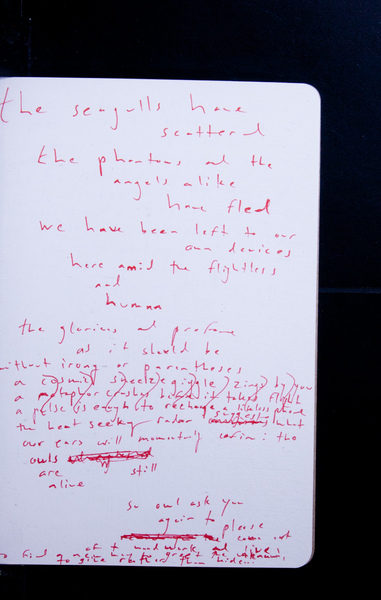 the seagulls have
scatterd
the phantoms and the
angels alike
have fled
we have been left to our
own devices
here amid the flightless
and
humna
the glorius and profane
as it should be
without irony or parentheses
a cosmic sneeze giggle zings by you
a metaphor crashes before it takes flight
a pulse is enough to recharge a lifeless phone
the heat seeking radar suggests what
our ears will momently confirm: the
owls
are still
alive
so owl ask you
again to please
come out
of woodwork and live!
find a new way to greet the unknown,
to give rather than hide...